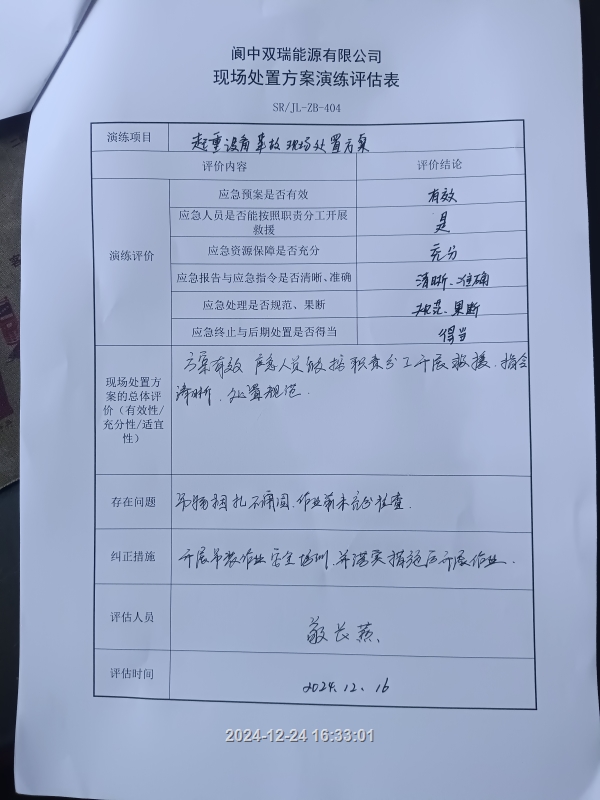 阆中双瑞能源有限公司
现场处置方案演练评估表
SR/JL-ZB-404
演练项目 起重设备事故现场处置方案
评价内容 评价结论
演练评价
应急预案是否有效 有效
应急人员是否能按照职责分工开展
救援 是
应急资源保障是否充分 充分
应急报告与应急指令是否清晰、准确 清晰、准确
应急处理是否规范、果断 规范、果断
应急终止与后期处置是否得当 得当
现场处置方
案的总体评
价（有效性/
充分性/适宜
性）
方案有效 应急人员能按职责分工开展救援、指令
清晰、处置规范.
存在问题 吊物捆扎不牢固、作业前未充分检查.
纠正措施 开展吊装作业安全培训、并落实措施后开展作业.
评估人员 敬长燕
评估时间 2024.12.16
2024-12-24 16:33:01